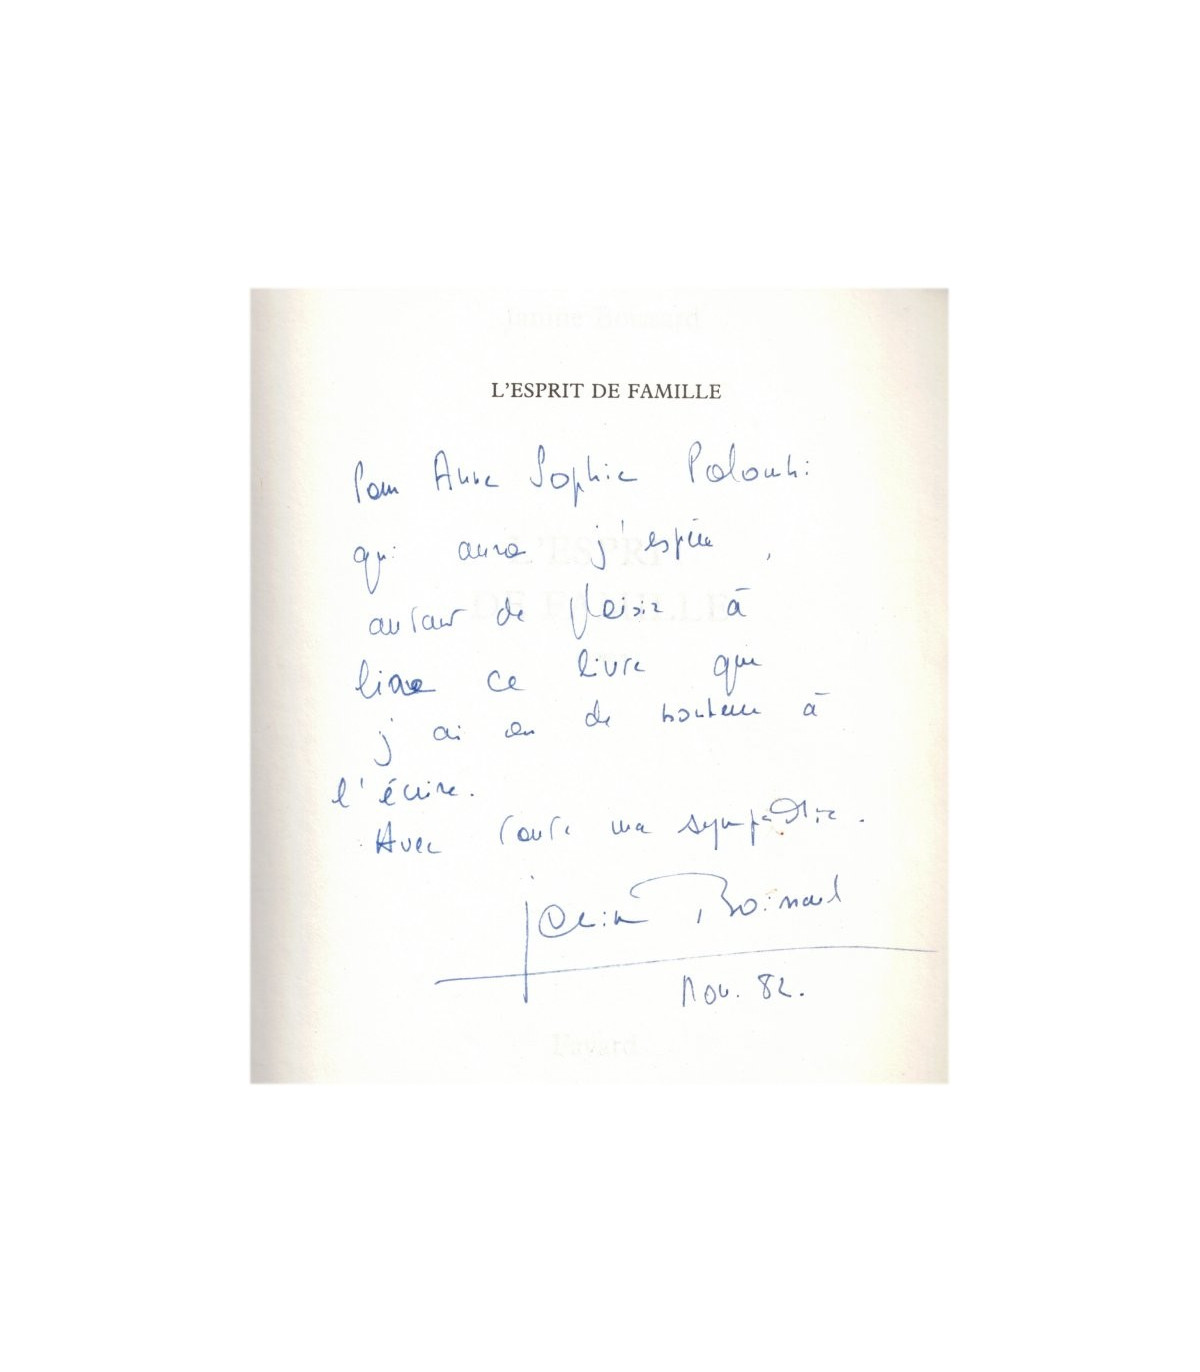 Janine Boissard
L'ESPRIT DE FAMILLE
Pour Anne Sophie
qui aura j'espère,
L'ESPRIT
autant de plaisir à
DE FAMILLE
lire ce livre que
j'ai eu de bonheur à
l'écrire.
Avec toute ma sympathie.
Janine Boissard
Nov. 82.
Fayard